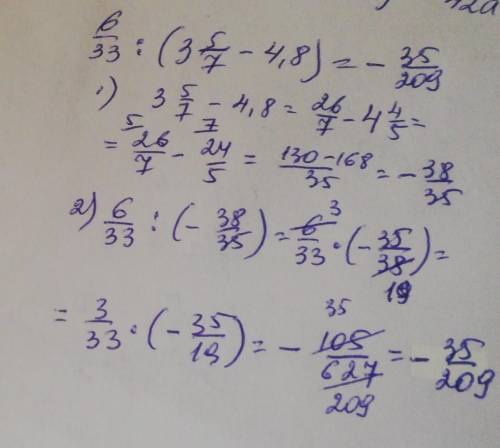 6/33 : (3 5/7 - 4,8) = - 35/209
1) 3 5/7 - 4,8 = 26/7 - 4 4/5 =
= 26/7 (5) - 24/5 (7) = (130-168)/35 = - 38/35
2) 6/33 : (- 38/35) = 6/33 (3) · (- 35/38 (19)) =
= 3/33 · (- 35/19) = - 105/627 (35/209) = - 35/209